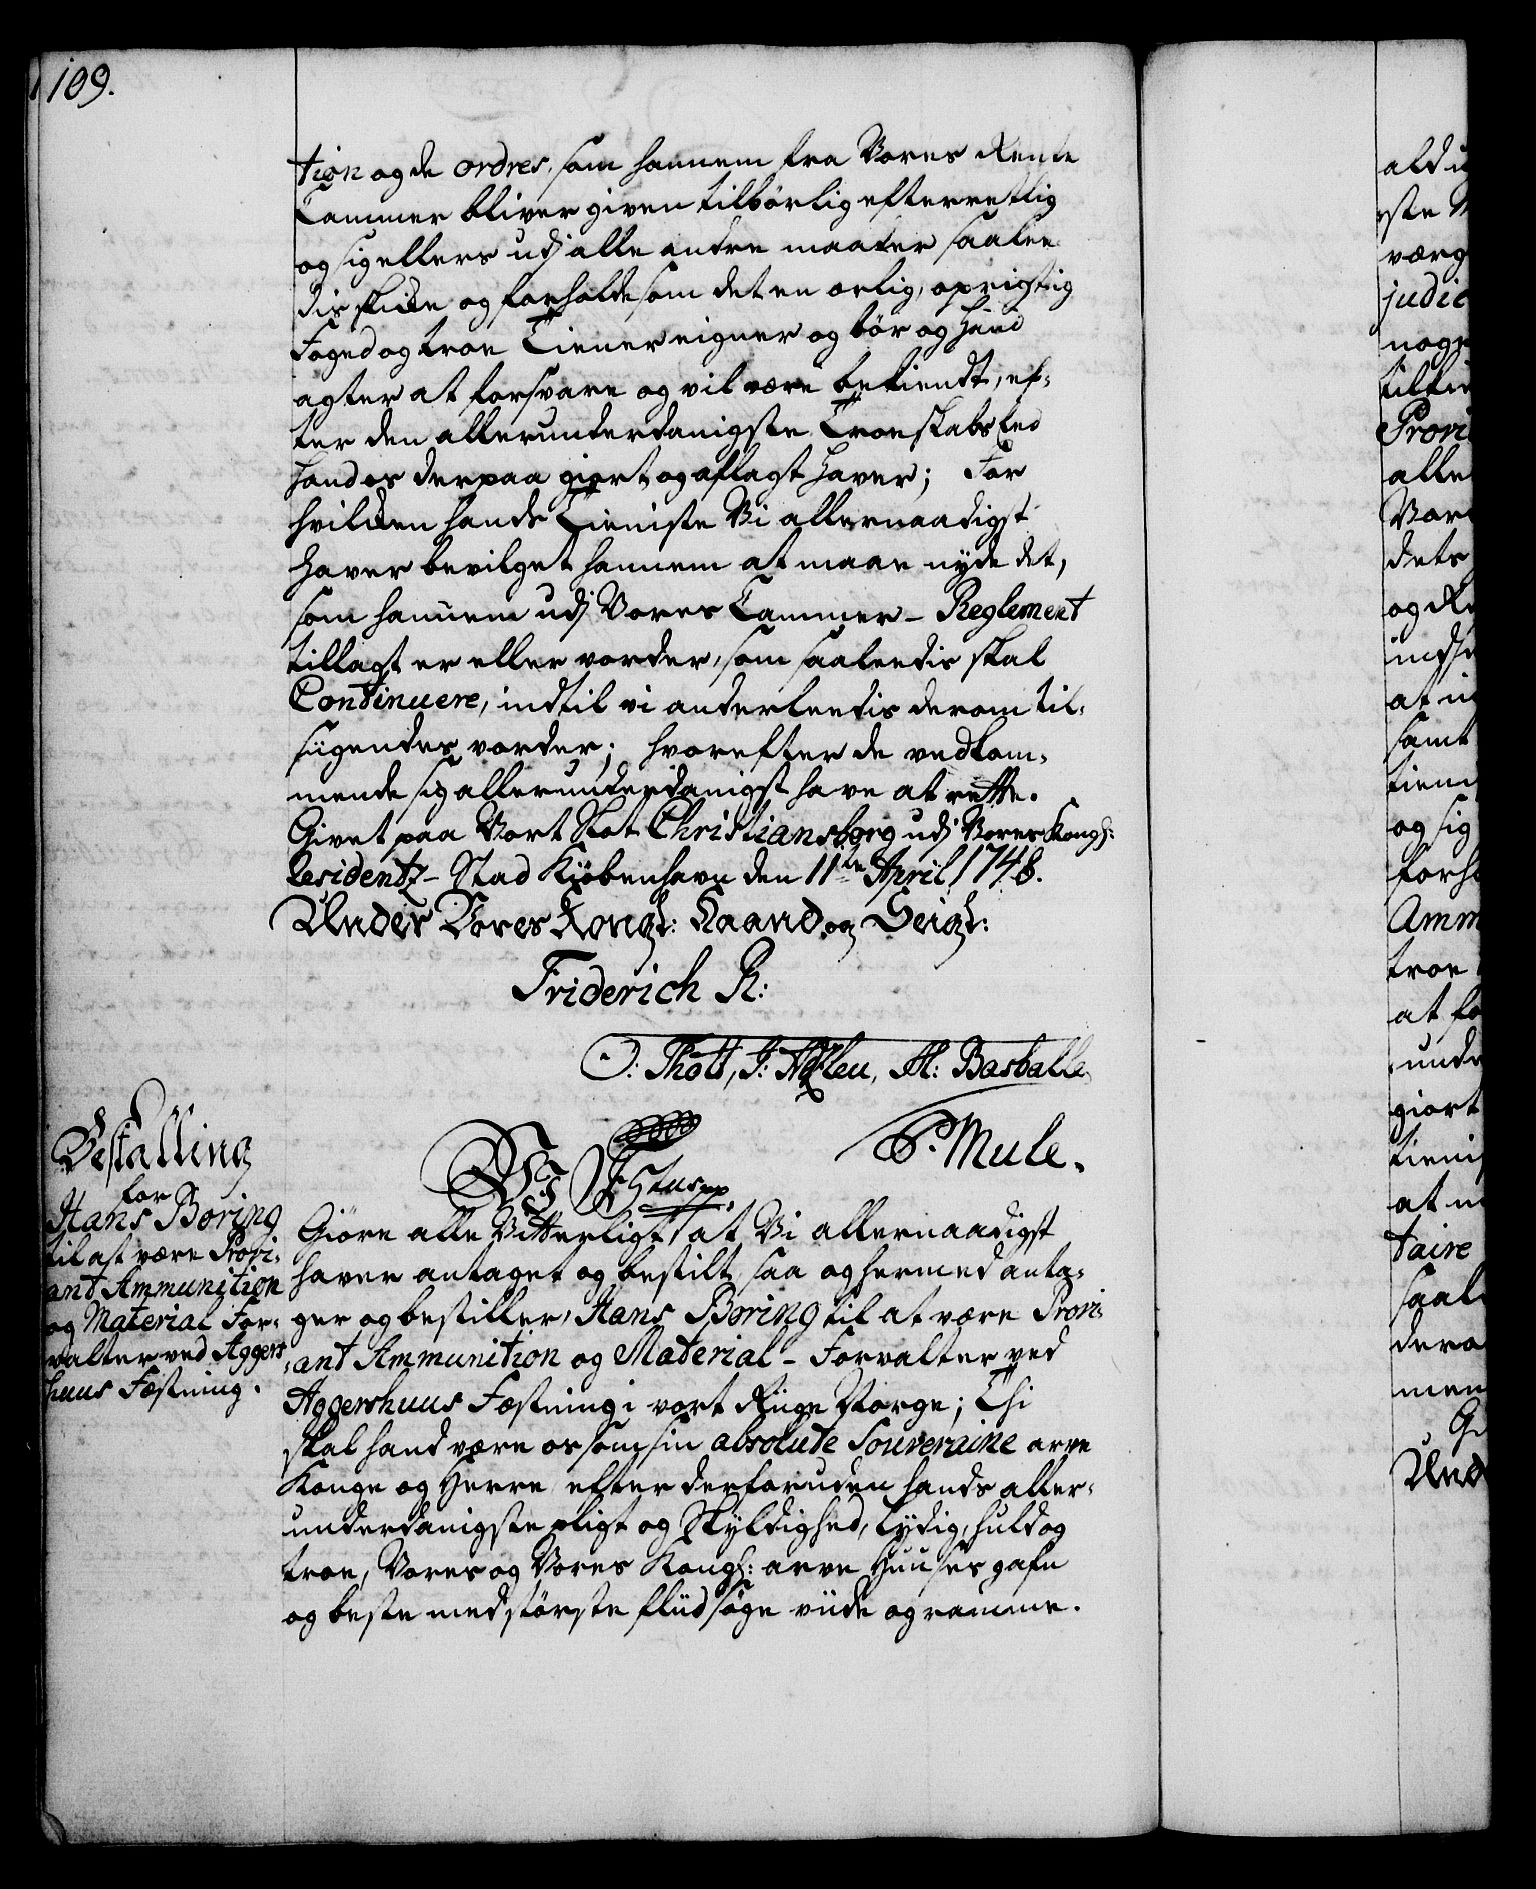 109.
tion og de ordres, som hannem fra Vores Rente
Cammer bliver given tilbørlig efterrettlig
og sig ellers udj alle andre maader saalee-
dis skikke og forholde som det en ærlig, oprigtig
Foged og troe Tiener eigner og bør og hand
agter at forsvare og vil være bekiendt, ef-
ter den allerunderdanigste Troeskabs Eed
hand os derpaa giort og aflagt haver; For
hvilcken hands Tieniste Vi allernaadigst
haver bevilget hannem at maae nyde det,
som hannem udj Vores Cammer-Reglement
tillagt er eller vorder, som saaleedis skal
Continuere, indtil vi anderleedis derom til-
siigendes vorder; hvorefter de vedkom-
mende sig allerunderdanigst have at rette.
Givet paa Vort Slot Christiansborg udj Vores Kongl:
Residentz-Stad Kiøbenhavn den 11te April 1748.
Under Vores Kongl: Haand og Seigl:
Friderich R:
O: Thott, J: H: Basballe
P. Mule.
Bestalling
for
Hans Boring
til at være Provi-
ant Ammunition
og Material For-
valter ved Aggers
huus Fæstning.
Vj F 5tus pp.
Giøre alle Vitterligt, at Vi allernaadigst
haver antaget og bestilt saa og hermed anta-
ger og bestiller, Hans Boring til at være Provi-
ant Ammunition og Material-Forvalter ved
Aggershuus Fæstning i vort Riige Norge; Thi
skal hand være os som sin absolute Souveraine arve
Konge og Herre, efter derforuden hands aller-
underdanigste pligt og Skyldighed, lydig, huld og
troe, Vores og Vores Kongl: arve Huuses gafn
og beste med største fliid søge viide og ramme.